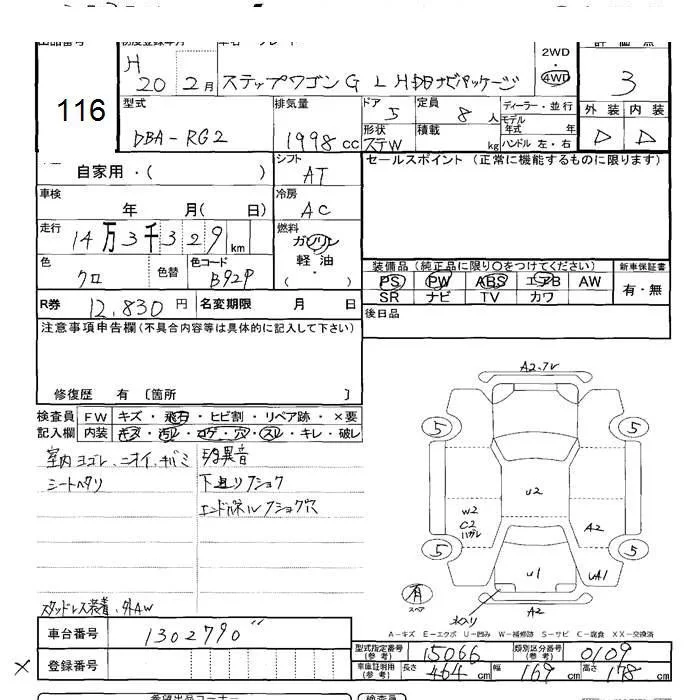 初度登録年月
H 20 2月
ステップワゴン G L HDDナビパッケージ
2WD
4WD
評価点
3
116
型式
DBA-RG2
排気量
1998 cc
ドア 5
定員 8 人
形状 ステW
積載 kg
ディーラー・並行
モデル年式 年
ハンドル 左・右
外装 内装
D D
自家用・( )
シフト
AT
セールスポイント (正常に機能するものに限ります)
車検
年 月( 日)
冷房
AC
走行
14万3千329 km
燃料
ガソリン
軽油
( ・ )
色
クロ
色替
色コード
B92P
装備品 (純正品に限り○をつけてください)
新車保証書
PS PW ABS エアB AW
SR ナビ TV カワ
有・無
R券 12,830 円
名変期限 月 日
後日品
注意事項申告欄(不具合内容等は具体的に記入して下さい)
修復歴 有 〔箇所 〕
検査員記入欄
FW キズ・飛石・ヒビ割・リペア跡・×要
内装 キズ・汚レ・コゲ・穴・スレ・キレ・破レ
室内ヨゴレ、ニオイ、キバミ
シートヘタリ
異音
下廻りフショク
エンドパネルフショク穴
スタッドレス装着、外AW
A2.TV
5 5
U2
W2
C2
ハガレ
A2
5 5
U1
UA1
有
スペア
A2
A-キズ E-エクボ U-凹み W-補修跡 S-サビ C-腐食 XX-交換済
車台番号 1302790
登録番号
×
型式指定番号(参考) 15066
類別区分番号(参考) 0109
車庫証明用(参考) 長さ 464 cm 幅 169 cm 高さ 178 cm
希望出品コーナー
検査員